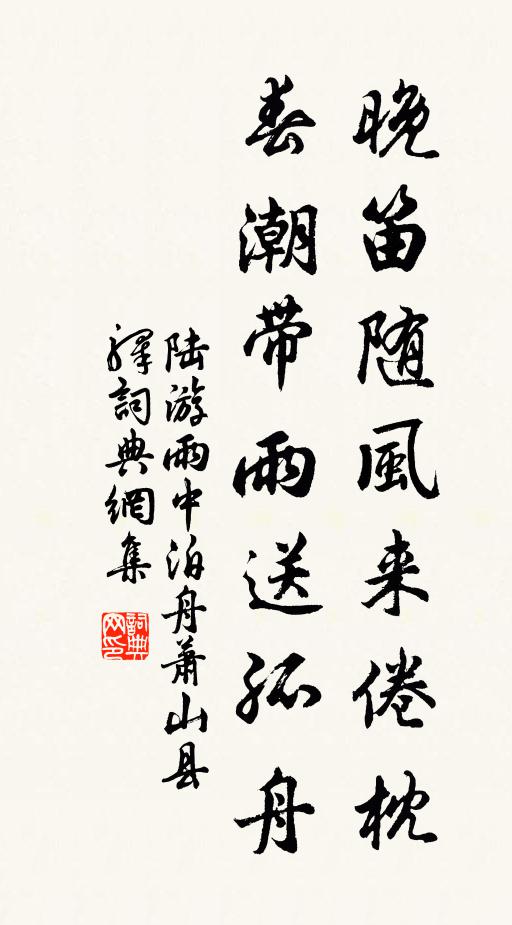 晚笛随風来倦枕
春潮带雨送孤舟
陆游雨中泊舟萧山县
释詞典網集
詞典网印